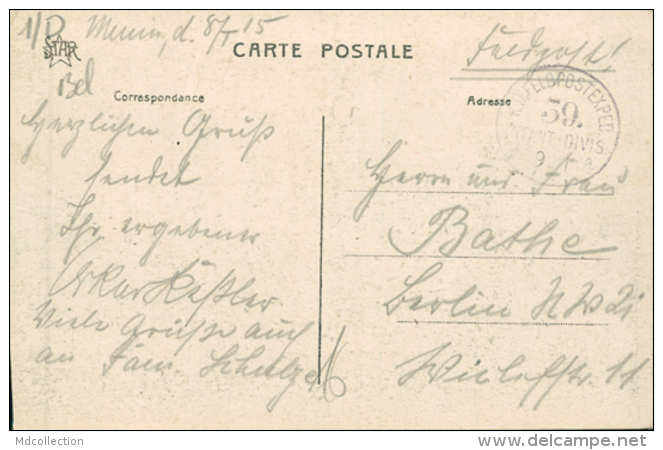 1/D
Menin, d. 8/5 15
STAR
Bel
CARTE POSTALE
Feldpost!
Correspondance
Adresse
K.D.FELDPOSTEXPED.
59.
INFANT.-DIVIS.
9 5
Herzlichen Gruß
sendet
Ihr ergebener
Oskar Keßler
Viele Grüße auch
an Fam. Schulze
Herrn und Frau
Bathe
Berlin NW 21
Wiclefstr. 11
Mdcollection
www.delcampe.net